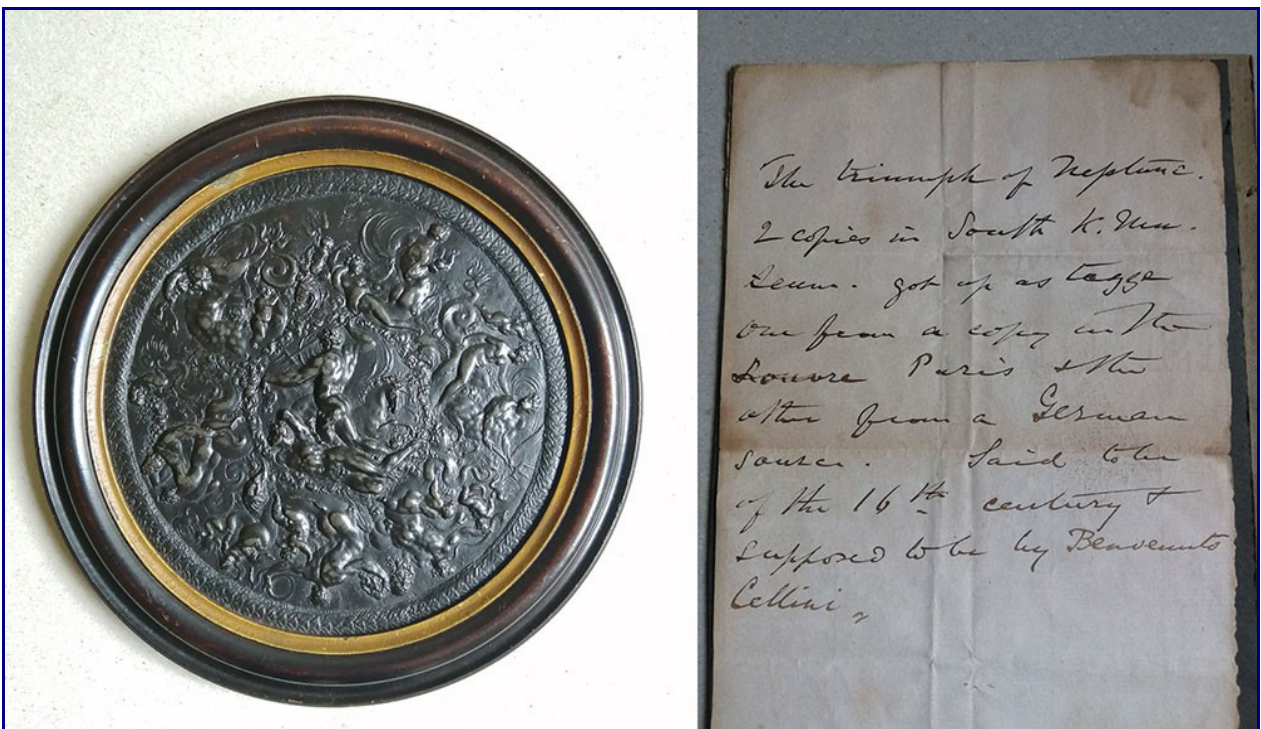 The triumph of Neptune.
2 copies in South K. Mu-
seum. got up as tazze
one from a copy in the
Louvre Paris & the
other from a German
source. Said to be
of the 16th century &
supposed to be by Benvenuto
Cellini